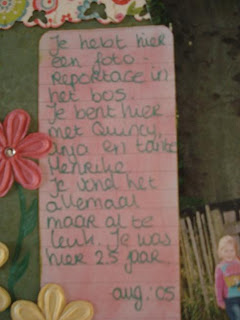 Je hebt hier
een foto-
reportage in
het bos.
Je bent hier
met Quincy,
anja en tante
Henrike.
Je vond het
allemaal
maar al te
leuk. Je was
hier 2.5 jaar
aug. '05